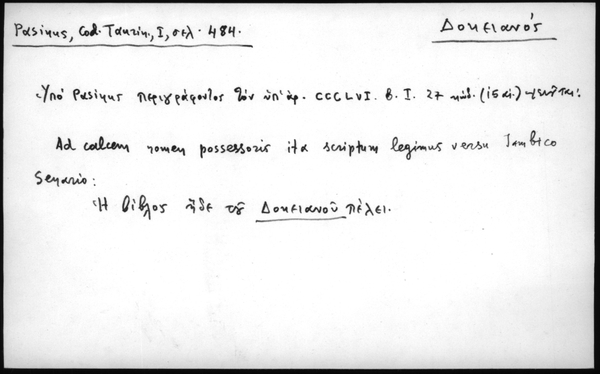 Pasinus, Cod. Taurin., I, σελ. 484.
Δοκειανός
Ὑπὸ Pasinus περιγράφοντος τὸν ὑπ' ἀρ. CCCLVI. B. I. 27 κώδ. (15 αἰ.)
Ad calcem nomen possessoris ita scriptum legimus versu Iambico
Senario:
Ἡ βίβλος ἥδε τοῦ Δοκειανοῦ πέλει.